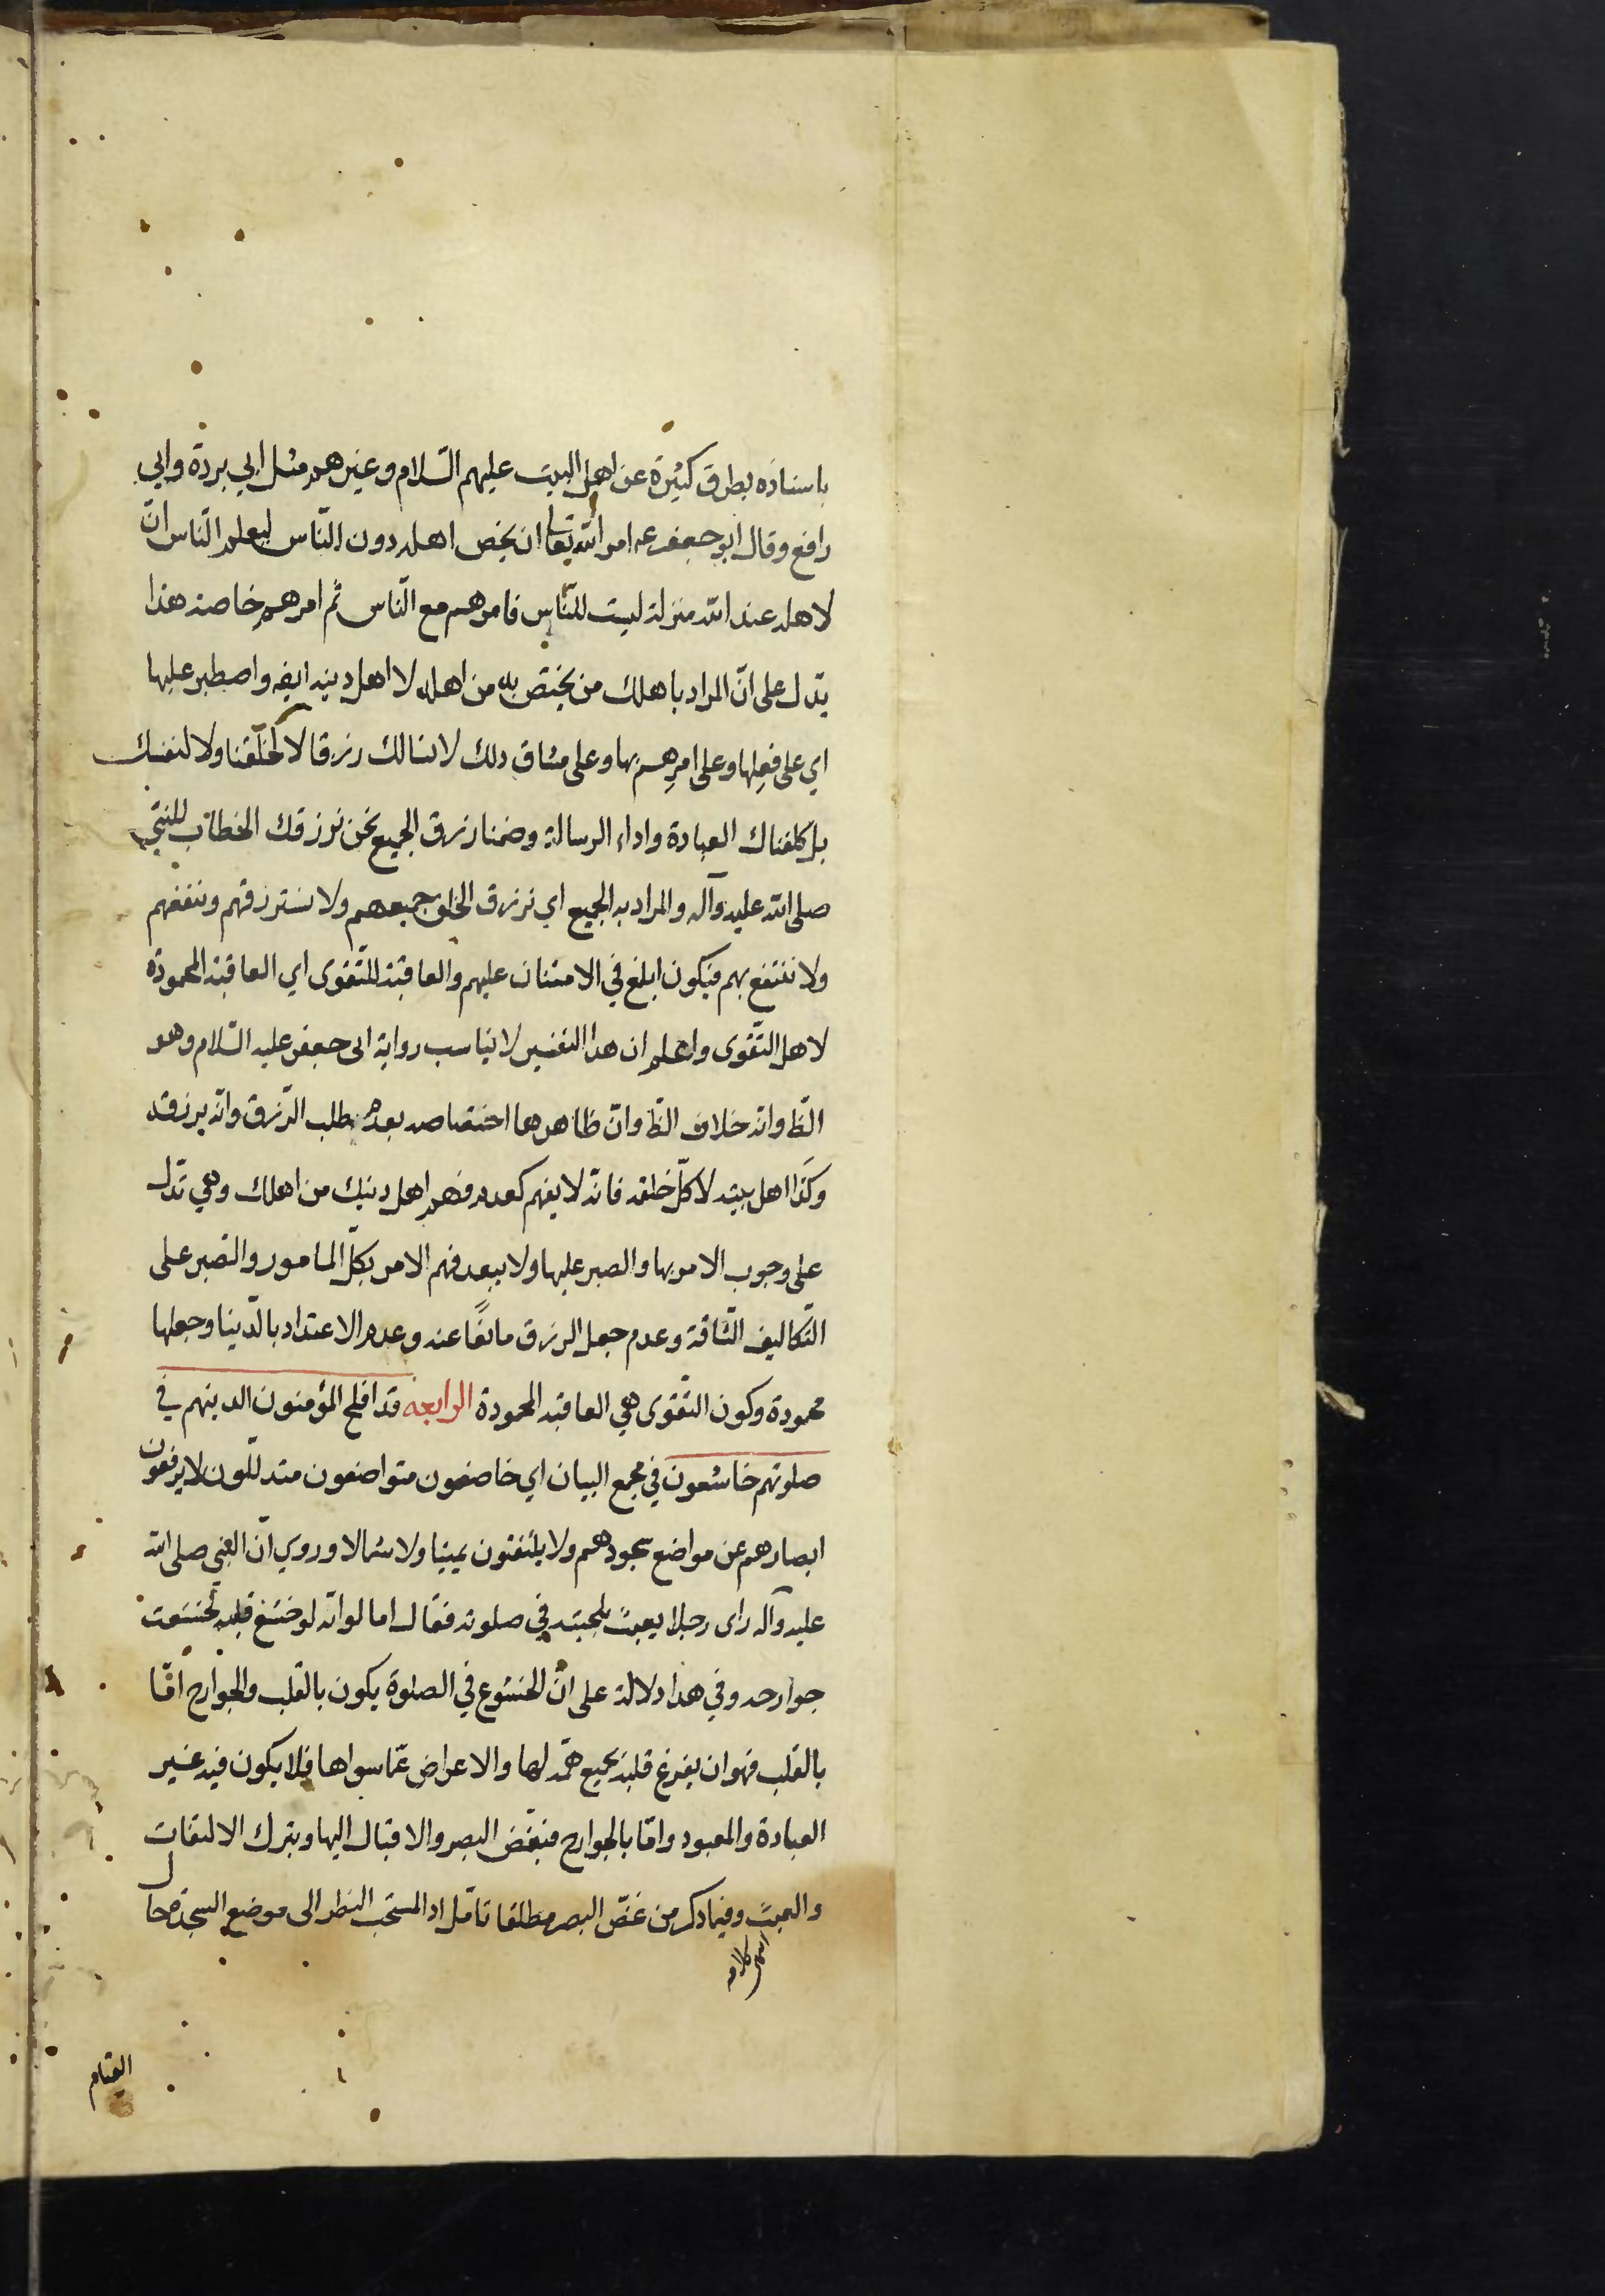 باسناده بطرق كثيرة عن اهل البيت عليهم السّلام وغيرهم مثل ابي بردة وابي
رافع وقال ابو جعفر عه امر الله تعالى ان يخص اهله دون النّاس ليعلم النّاس انّ
لاهله عند الله منزلة ليست للنّاس فامرهم مع النّاس ثم امرهم خاصة هذا
يدل على انّ المراد باهلك من يختصّ به من اهله لا اهل دينه ايضه واصطبر عليها
اي على فعلها وعلى امرهم بها وعلى مشاق ذلك لا نسالك رزقا لا لخلقنا ولا لنفسك
بل كلفناك العبادة واداء الرسالة وضمنا رزق الجميع نحن نرزقك الخطاب للنبيّ
صلى الله عليه وآله والمراد به الجميع اي نرزق الخلق جميعهم ولا نسترزقهم وننفعهم
ولا ننتفع بهم فيكون ابلغ في الامتنان عليهم والعاقبة للتّقوى اي العاقبة المحمودة
لاهل التّقوى واعلم ان هذا التفسير لا يناسب رواية ابى جعفر عليه السّلام وهو
الظّ وانه خلاف الظّ وانّ ظاهرها اختصاصه بعدم طلب الرّزق وانّه يرزقه
وكذا اهل بيته لا كلّ خلقه فانّه لا يفهم كعدم فهم اهل دينك من اهلك وهي تدّل
على وجوب الامر بها والصبر عليها ولا يبعد فهم الامر بكلّ المامور والصّبر على
التّكاليف الشّاقة وعدم جعل الرزق مانعًا عنه وعدم الاعتداد بالدّنيا وجعلها
محمودة وكون التّقوى هي العاقبة المحمودة الرابعه قد افلح المؤمنون الذينهم في
صلوتهم خاشعون في مجمع البيان اي خاضعون متواضعون متذلّلون لا يرفعون
ابصارهم عن مواضع سجودهم ولا يلتفتون يمينا ولا شمالا وروي انّ النبي صلى الله
عليه وآله راى رجلا يعبث بلحيته في صلوته فقال اما لو انّه لو خشع قلبه لخشعت
جوارحه وفي هذا دلالة على انّ الخشوع في الصلوة يكون بالقلب والجوارح امّا
بالقلب فهو ان يفرغ قلبه بجميع همّه لها والاعراض عمّا سواها فلا يكون فيه غير
العبادة والمعبود وامّا بالجوارح فبغضّ البصر والاقبال اليها ويترك الالتفات
والعبث وفيما ذكر من غضّ البصر مطلقا تامّل اذ المستحب النظر الى موضع السجدة حال
انتهى كلامه
القيام